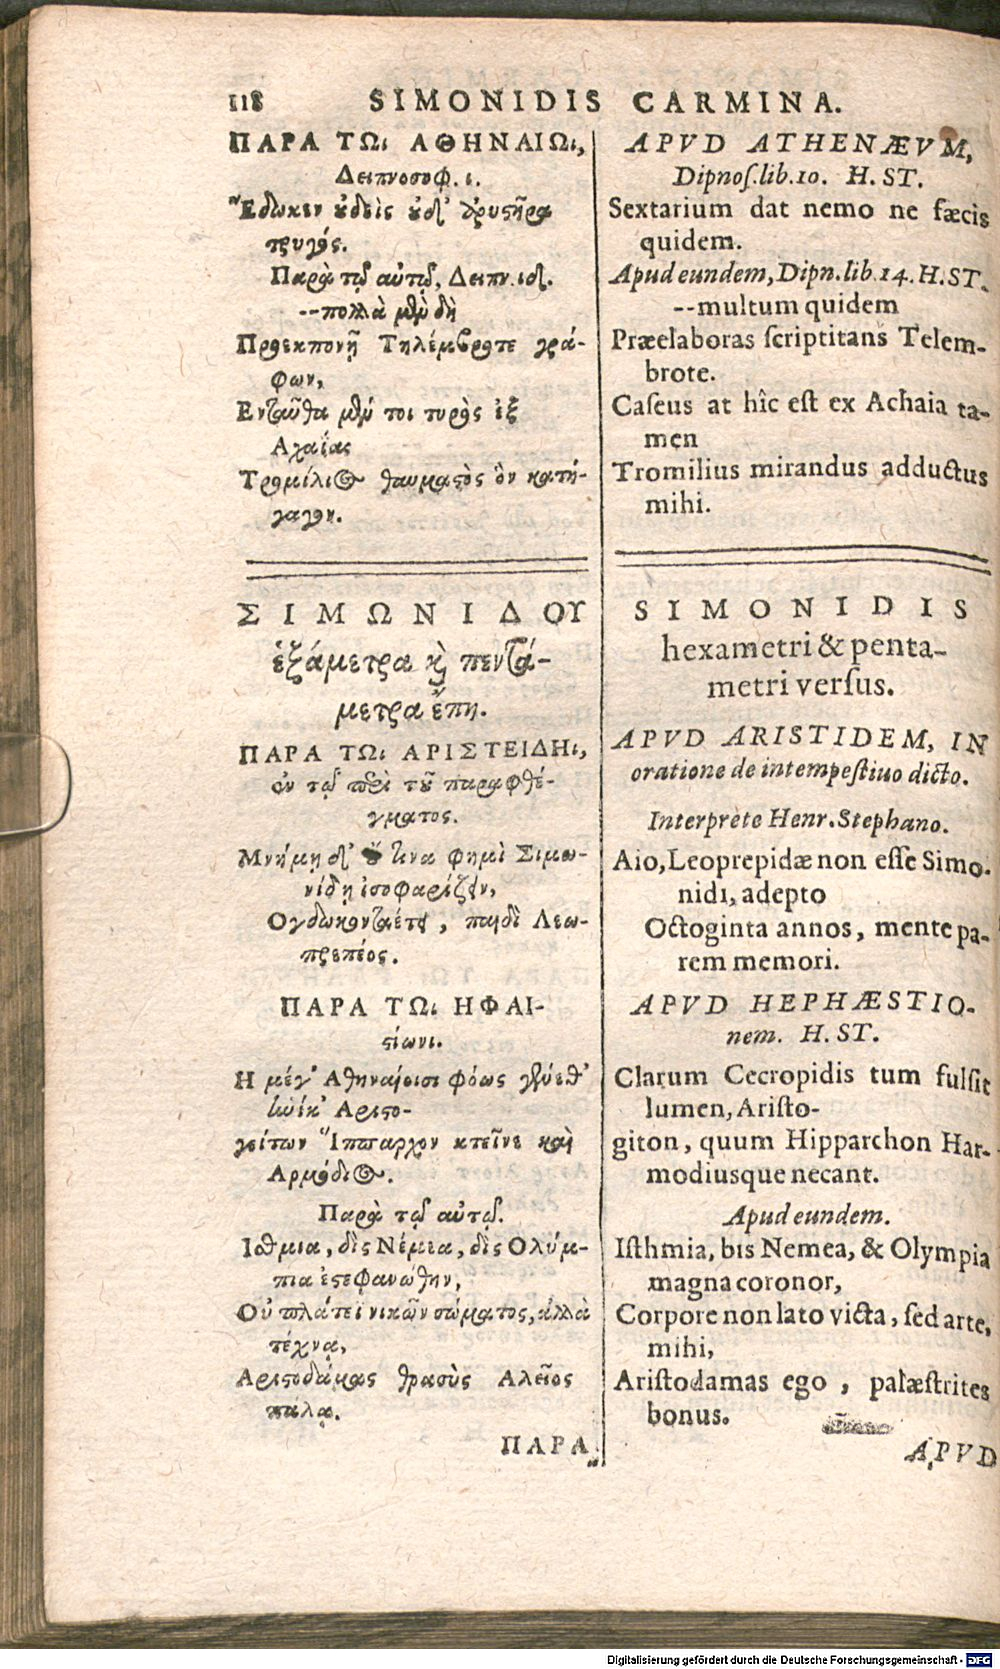 118 SIMONIDIS CARMINA.
ΠΑΡΑ ΤΩι ΑΘΗΝΑΙΩι,
Δειπνοσοφ. ι.
Ἔδωκεν οὐδεὶς οὐδ' ἀρυστῆρα
τρυγός.
Παρὰ τῷ αὐτῷ, Δειπν. ιδ.
--πολλὰ μὲν δὴ
Προεκπονῇ Τηλέμβροτε γρά-
φων,
Ενταῦθα μέν τοι τυρὸς ἐξ
Αχαΐας
Τρομίλιος θαυμαστὸς ὃν κατή-
γαγον.
ΣΙΜΩΝΙΔΟΥ
ἑξάμετρα καὶ πεντά-
μετρα ἔπη.
ΠΑΡΑ ΤΩι ΑΡΙΣΤΕΙΔΗι,
ἐν τῷ περὶ τοῦ παραφθέ-
γματος.
Μνήμῃ δ' οὔ τινα φημὶ Σιμω-
νίδῃ ἰσοφαρίζειν,
Ογδωκονταέτει, παιδὶ Λεω-
πρεπέος.
ΠΑΡΑ ΤΩι ΗΦΑΙ-
στίωνι.
Η μέγ' Αθηναίοισι φόως γένεθ'
ἡνίκ' Αριστο-
γείτων Ἵππαρχον κτεῖνε καὶ
Αρμόδιος.
Παρὰ τῷ αὐτῷ.
Ισθμια, δὶς Νέμεα, δὶς Ολύμ-
πια ἐστεφανώθην,
Οὐ πλάτεϊ νικῶν σώματος, ἀλλὰ
τέχνᾳ,
Αριστοδάμας θρασὺς Αλεῖος
πάλᾳ.
ΠΑΡΑ
APVD ATHENÆVM,
Dipnos. lib. 10. H. ST.
Sextarium dat nemo ne fæcis
quidem.
Apud eundem, Dipn. lib. 14. H. ST.
--multum quidem
Præelaboras scriptitans Telem-
brote.
Caseus at hîc est ex Achaia ta-
men
Tromilius mirandus adductus
mihi.
SIMONIDIS
hexametri & penta-
metri versus.
APVD ARISTIDEM, IN
oratione de intempestiuo dicto.
Interprete Henr. Stephano.
Aio, Leoprepidæ non esse Simo-
nidi, adepto
Octoginta annos, mente pa-
rem memori.
APVD HEPHÆSTIO-
nem. H. ST.
Clarum Cecropidis tum fulsit
lumen, Aristo-
giton, quum Hipparchon Har-
modiusque necant.
Apud eundem.
Isthmia, bis Nemea, & Olympia
magna coronor,
Corpore non lato victa, sed arte,
mihi,
Aristodamas ego, palæstrites
bonus.
APVD
Digitalisierung gefördert durch die Deutsche Forschungsgemeinschaft - DFG